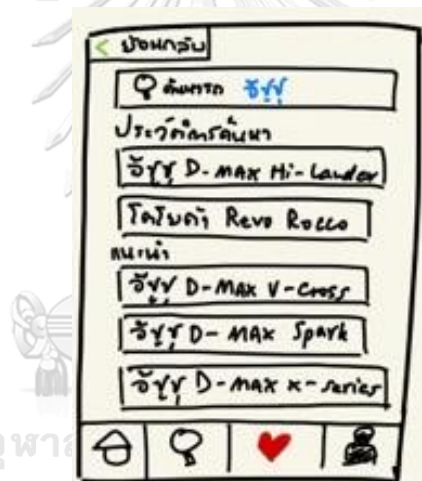 < ย้อนกลับ
ค้นหารถ อีซูซุ
ประวัติการค้นหา
อีซูซุ D-MAX Hi-Lander
โตโยต้า Revo Rocco
แนะนำ
อีซูซุ D-MAX V-Cross
อีซูซุ D-MAX Spark
อีซูซุ D-MAX X-series